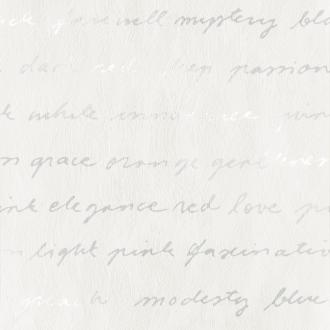 farewell mystery bl
dark red deep passion
k white innocence
n grace orange gentleness
ink elegance red love p
n light pink fascinati
peach modesty blue